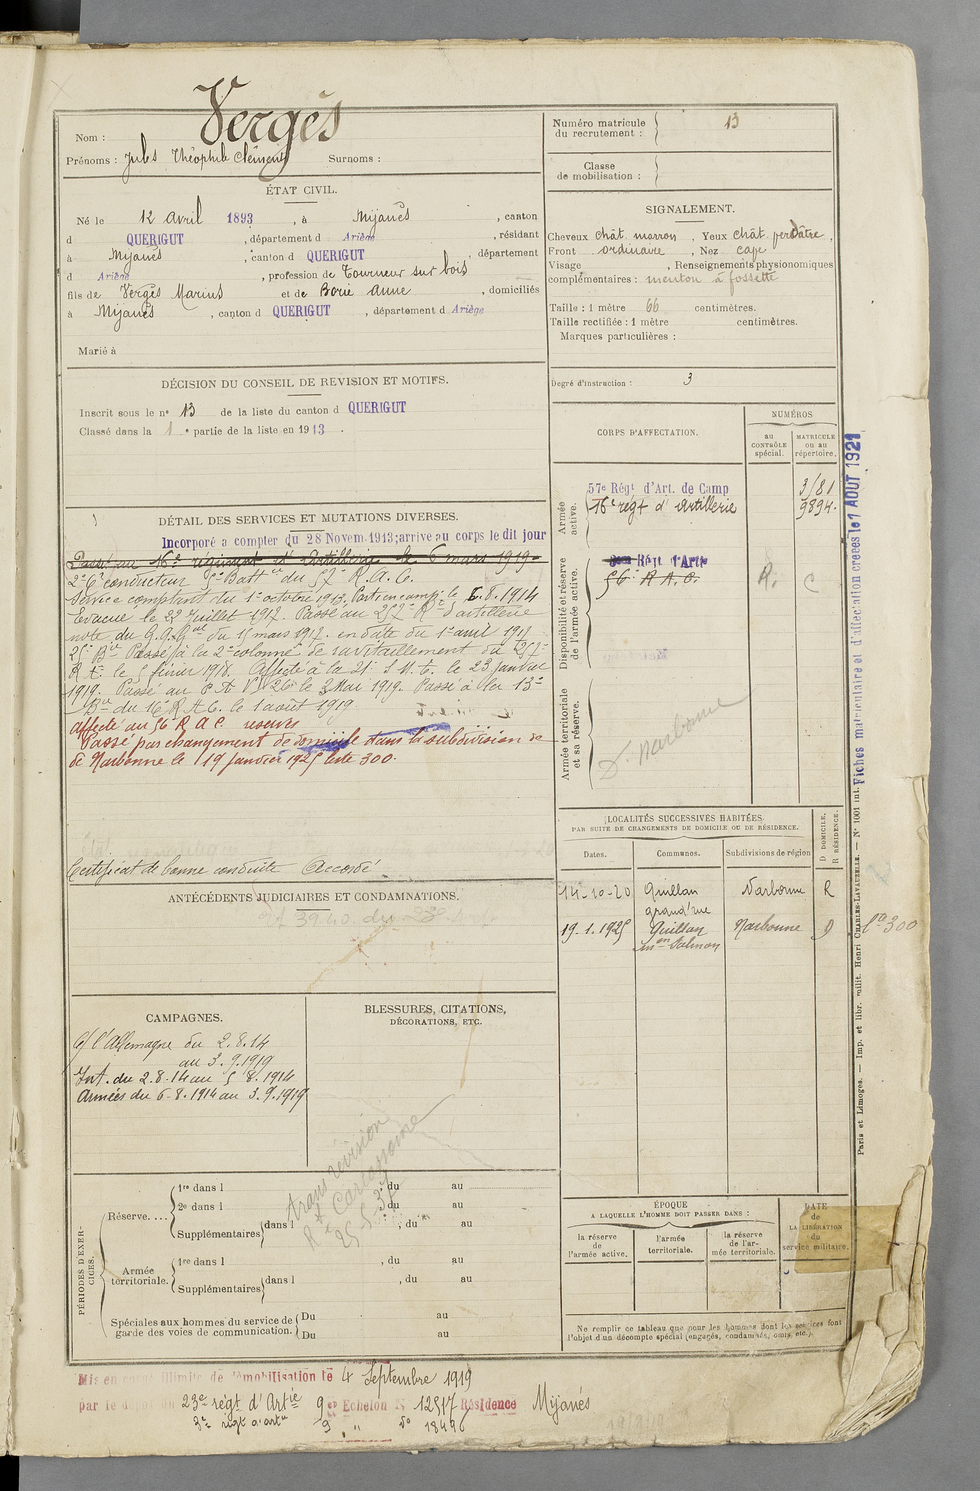 Nom : Vergès
Prénoms : Jules Théophile Clément Surnoms :
ÉTAT CIVIL.
Né le 12 Avril 1893, à Mijanès, canton
d QUERIGUT, département d Ariège, résidant
à Mijanès, canton d QUERIGUT, département
d Ariège, profession de Tourneur sur bois
fils de Vergès Marius et de Borie Anne, domiciliés
à Mijanès, canton d QUERIGUT, département d Ariège
Marié à
DÉCISION DU CONSEIL DE REVISION ET MOTIFS.
Inscrit sous le n° 13 de la liste du canton d QUERIGUT
Classé dans la 1e partie de la liste en 1913.
DÉTAIL DES SERVICES ET MUTATIONS DIVERSES.
Incorporé a compter du 28 Novem. 1913; arrivé au corps le dit jour
Passé au 16e régiment d'Artillerie le 6 mars 1919
2e C conducteur 5e Batt ie du 57e R.A.C.
Service comptant du 1er octobre 1913. Parti en camp. le 6.8.1914
Evacué le 22 Juillet 1917. Passé au 257e Rt d'artillerie
note du G.Q.Gal du 15 mars 1917. en date du 1er avril 1917
25e Bie Passé à la 2e colonne de ravitaillement du 257e
R.A. le 5 février 1918. Affecté à la 21e S.M.A. le 23 janvier
1919. Passé au P.A.D. 126 le 3 Mai 1919. Passé à la 13e
Bie du 16e R.A.C. le 1 août 1919
Affecté au 56 R.A.C. réserve
Passé par changement de domicile dans la subdivision de
de Narbonne le 19 janvier 1925 liste 300.
Certificat de bonne conduite Accordé
ANTÉCÉDENTS JUDICIAIRES ET CONDAMNATIONS.
CAMPAGNES.
C/ l'Allemagne du 2.8.14
au 3.9.1919
Int. du 2.8.14 au 5 8.1914
Armées du 6-8.1914 au 3.9.1919
BLESSURES, CITATIONS,
DÉCORATIONS, ETC.
trans révision
Rt Carcassonne
PÉRIODES D'EXERCICES.
Réserve....
1re dans l , du au
2e dans l , du au
Supplémentaires dans l , du au
Armée territoriale.
1re dans l , du au
Supplémentaires dans l , du au
Spéciales aux hommes du service de garde des voies de communication.
Du au
Du au
Mis en congé illimité de démobilisation le 4 Septembre 1919
par le dépôt du 23e régt d'Artie 9e Echelon N° 12517 Résidence Mijanès
3e régt d'artie 9 " do 18496
Numéro matricule
du recrutement : 13
Classe
de mobilisation :
SIGNALEMENT.
Cheveux chât. marron, Yeux chât. verdâtre,
Front ordinaire, Nez cave
Visage , Renseignements physionomiques
complémentaires : menton à fossette
Taille : 1 mètre 66 centimètres.
Taille rectifiée : 1 mètre centimètres.
Marques particulières :
Degré d'instruction : 3
CORPS D'AFFECTATION.
NUMÉROS
AU CONTRÔLE spécial.
MATRICULE ou au répertoire.
Armée active.
57e Régt d'Art. de Camp 3/81
16e régt d'Artillerie 9894.
Disponibilité et réserve de l'armée active.
Régt d'Artie
56e R.A.C.
R. C
Armée territoriale et sa réserve.
D. Narbonne
LOCALITÉS SUCCESSIVES HABITÉES
PAR SUITE DE CHANGEMENTS DE DOMICILE OU DE RÉSIDENCE.
Dates. Communes. Subdivisions de région D DOMICILE. R RÉSIDENCE.
14-10-20 Quillan Narbonne R
grand'rue
19.1.1925 Quillan Narbonne D
mon Salmon
ÉPOQUE
A LAQUELLE L'HOMME DOIT PASSER DANS :
la réserve de l'armée active.
l'armée territoriale.
la réserve de l'armée territoriale.
DATE de LA LIBÉRATION du service militaire.
Ne remplir ce tableau que pour les hommes dont les services font
l'objet d'un décompte spécial (engagés, condamnés, omis, etc.).
Fiches matriculaire et d'affectation créées le 1 AOUT 1921
Paris et Limoges. — Imp. et libr. milit. Henri CHARLES-LAVAUZELLE. — N° 1001 int.